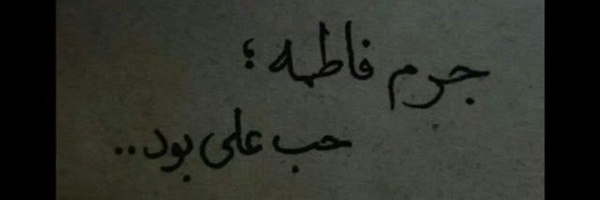 جرم فاطمه ؛
حب علی بود..